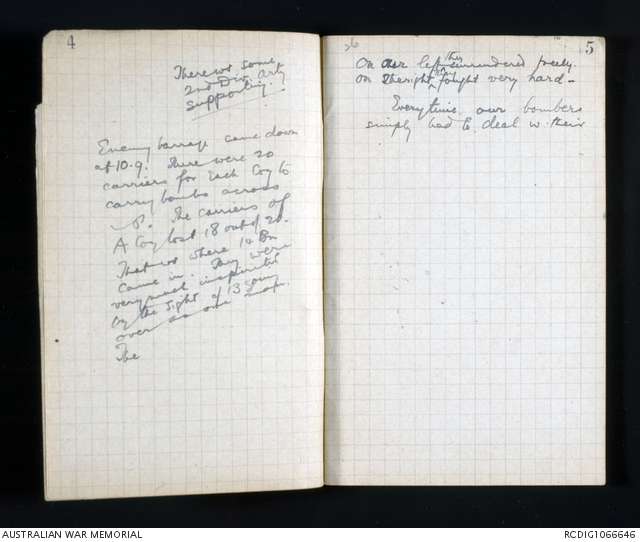 4
There was some
2nd Div. Arty
supporting.
Enemy barrage came down
at 10.9. There were 20
carriers for each Coy to
carry bombs across
The carriers of
A Coy lost 18 out of 20.
That was where 14 Bn
came in. They were
very much inspirited
by the sight of 13 going
over as one man.
The
26
5
On our left they surrendered freely.
on the right fought very hard -
Every time our bombers
simply had to deal w their
AUSTRALIAN WAR MEMORIAL
RCDIG1066646